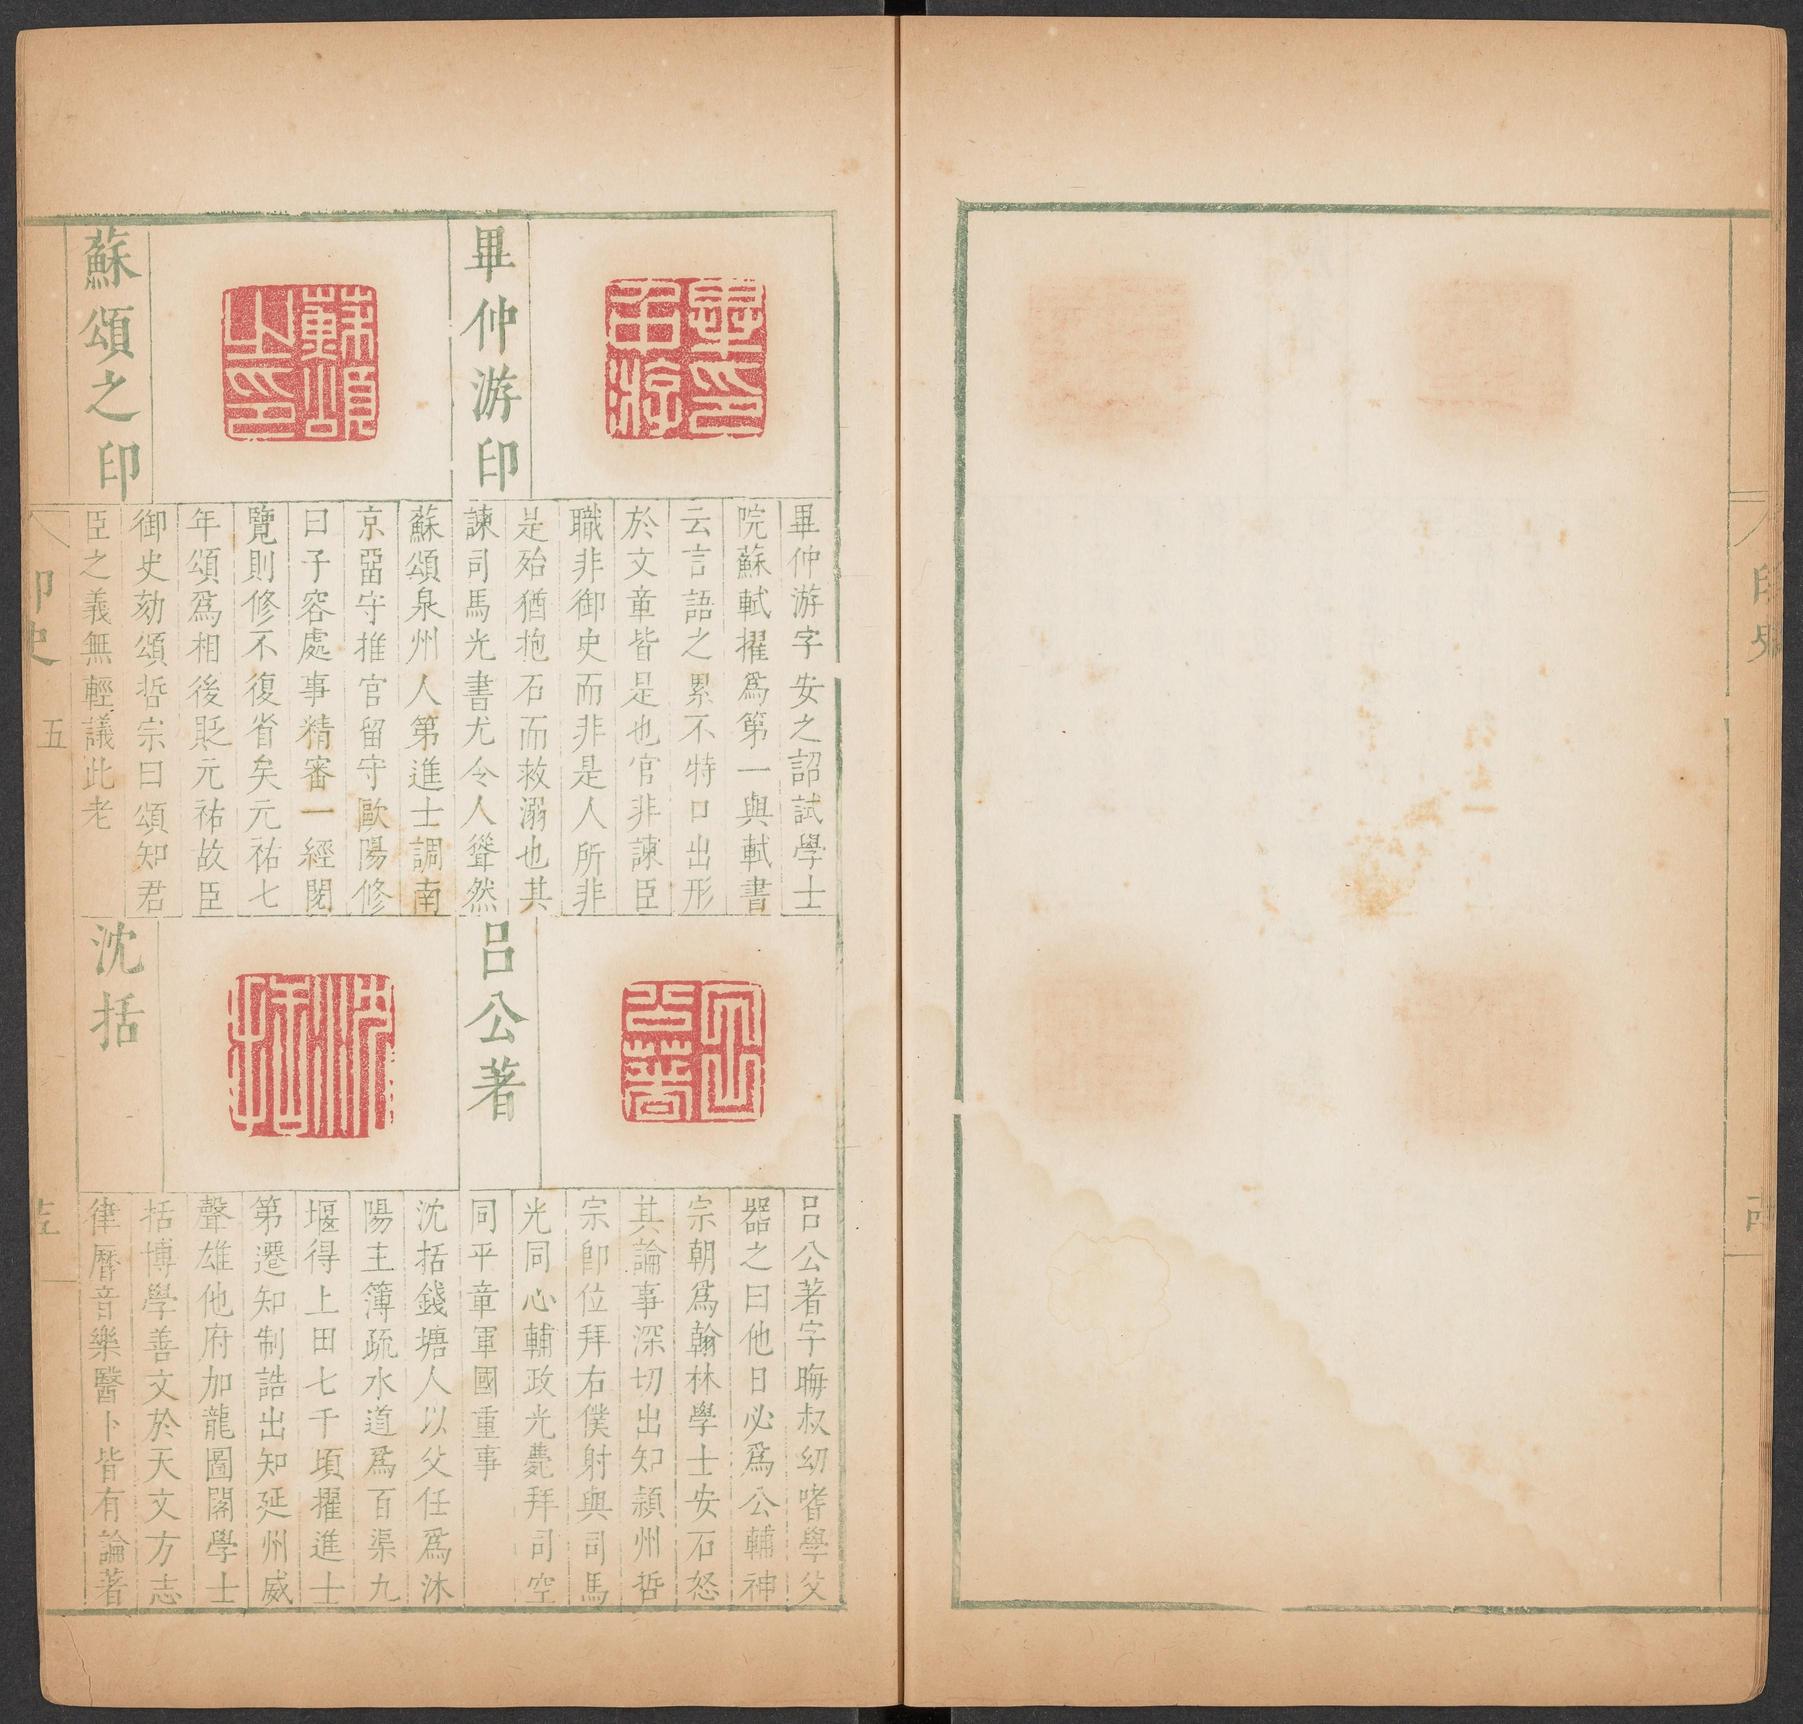 畢仲游印
畢仲游字安之詔試學士
院蘇軾擢爲第一與軾書
云言語之累不特口出形
於文章皆是也官非諫臣
職非御史而非是人所非
是殆猶抱石而救溺也其
諫司馬光書尤令人聳然
蘇頌之印
蘇頌泉州人第進士調南
京畱守推官留守歐陽修
曰子容處事精審一經閱
覽則修不復省矣元祐七
年頌爲相後貶元祐故臣
御史劾頌哲宗曰頌知君
臣之義無輕議此老
呂公著
呂公著字晦叔幼嗜學父
器之曰他日必爲公輔神
宗朝爲翰林學士安石怒
其論事深切出知潁州哲
宗卽位拜右僕射與司馬
光同心輔政光薨拜司空
同平章軍國重事
沈括
沈括錢塘人以父任爲沐
陽主簿疏水道爲百渠九
堰得上田七千頃擢進士
第遷知制誥出知延州威
聲雄他府加龍圖閣學士
括博學善文於天文方志
律曆音樂醫卜皆有論著
印史
五